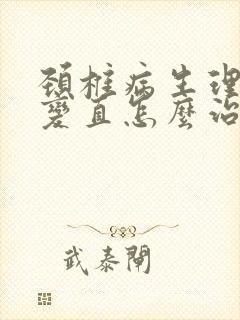 頸椎病生理
變直怎麼治
武泰閘